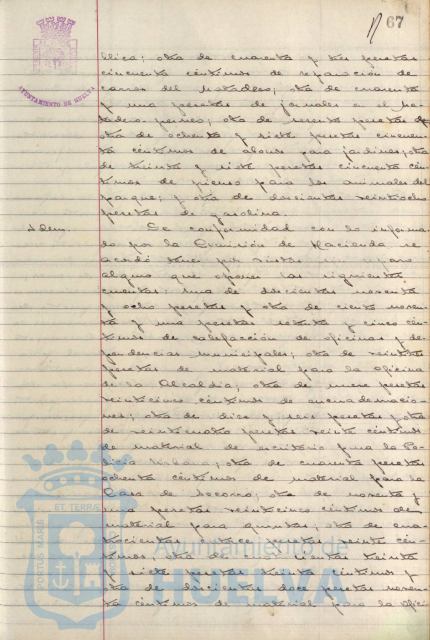 67
AYUNTAMIENTO DE HUELVA
blica; otra de cuarenta y tres pesetas
cincuenta céntimos de reparación de
carros del Matadero; otra de cuarenta
y una pesetas de jornales en el Ma-
tadero; otra de sesenta pesetas de
otra de ochenta y siete pesetas cincuen-
ta céntimos de abonos para jardines; otra
de treinta y siete pesetas cincuenta cén-
timos de pienso para los animales del
parque; y otra de doscientas veintiocho
pesetas de gasolina.
Idem.
De conformidad con lo informa-
do por la Comisión de Hacienda se
acordó tener por vistas sin reparo
alguno que oponer las siguientes
cuentas: una de doscientas noventa
y ocho pesetas y otra de ciento noven-
ta y una pesetas setenta y cinco cén-
timos de calefacción de oficinas y de-
pendencias municipales; otra de veintiséis
pesetas de material para la oficina
de la Alcaldía; otra de nueve pesetas
veinticinco céntimos de encuadernacio-
nes; otra de diez y seis pesetas y otra
de veinticuatro pesetas veinte céntimos
de material de escritorio para la Po-
licía Urbana; otra de cuarenta pesetas
ochenta céntimos de material para la
Casa de Socorro; otra de noventa y
una pesetas veinticinco céntimos de
material para quintas; otra de cua-
trocientas pesetas veinte cén-
timos; otra de treinta
y siete pesetas treinta céntimos y
otra de doscientas doce pesetas noven-
ta céntimos de material para la ofici-
PORTUS MARIS ET TERRAE
Ayuntamiento de
HUELVA